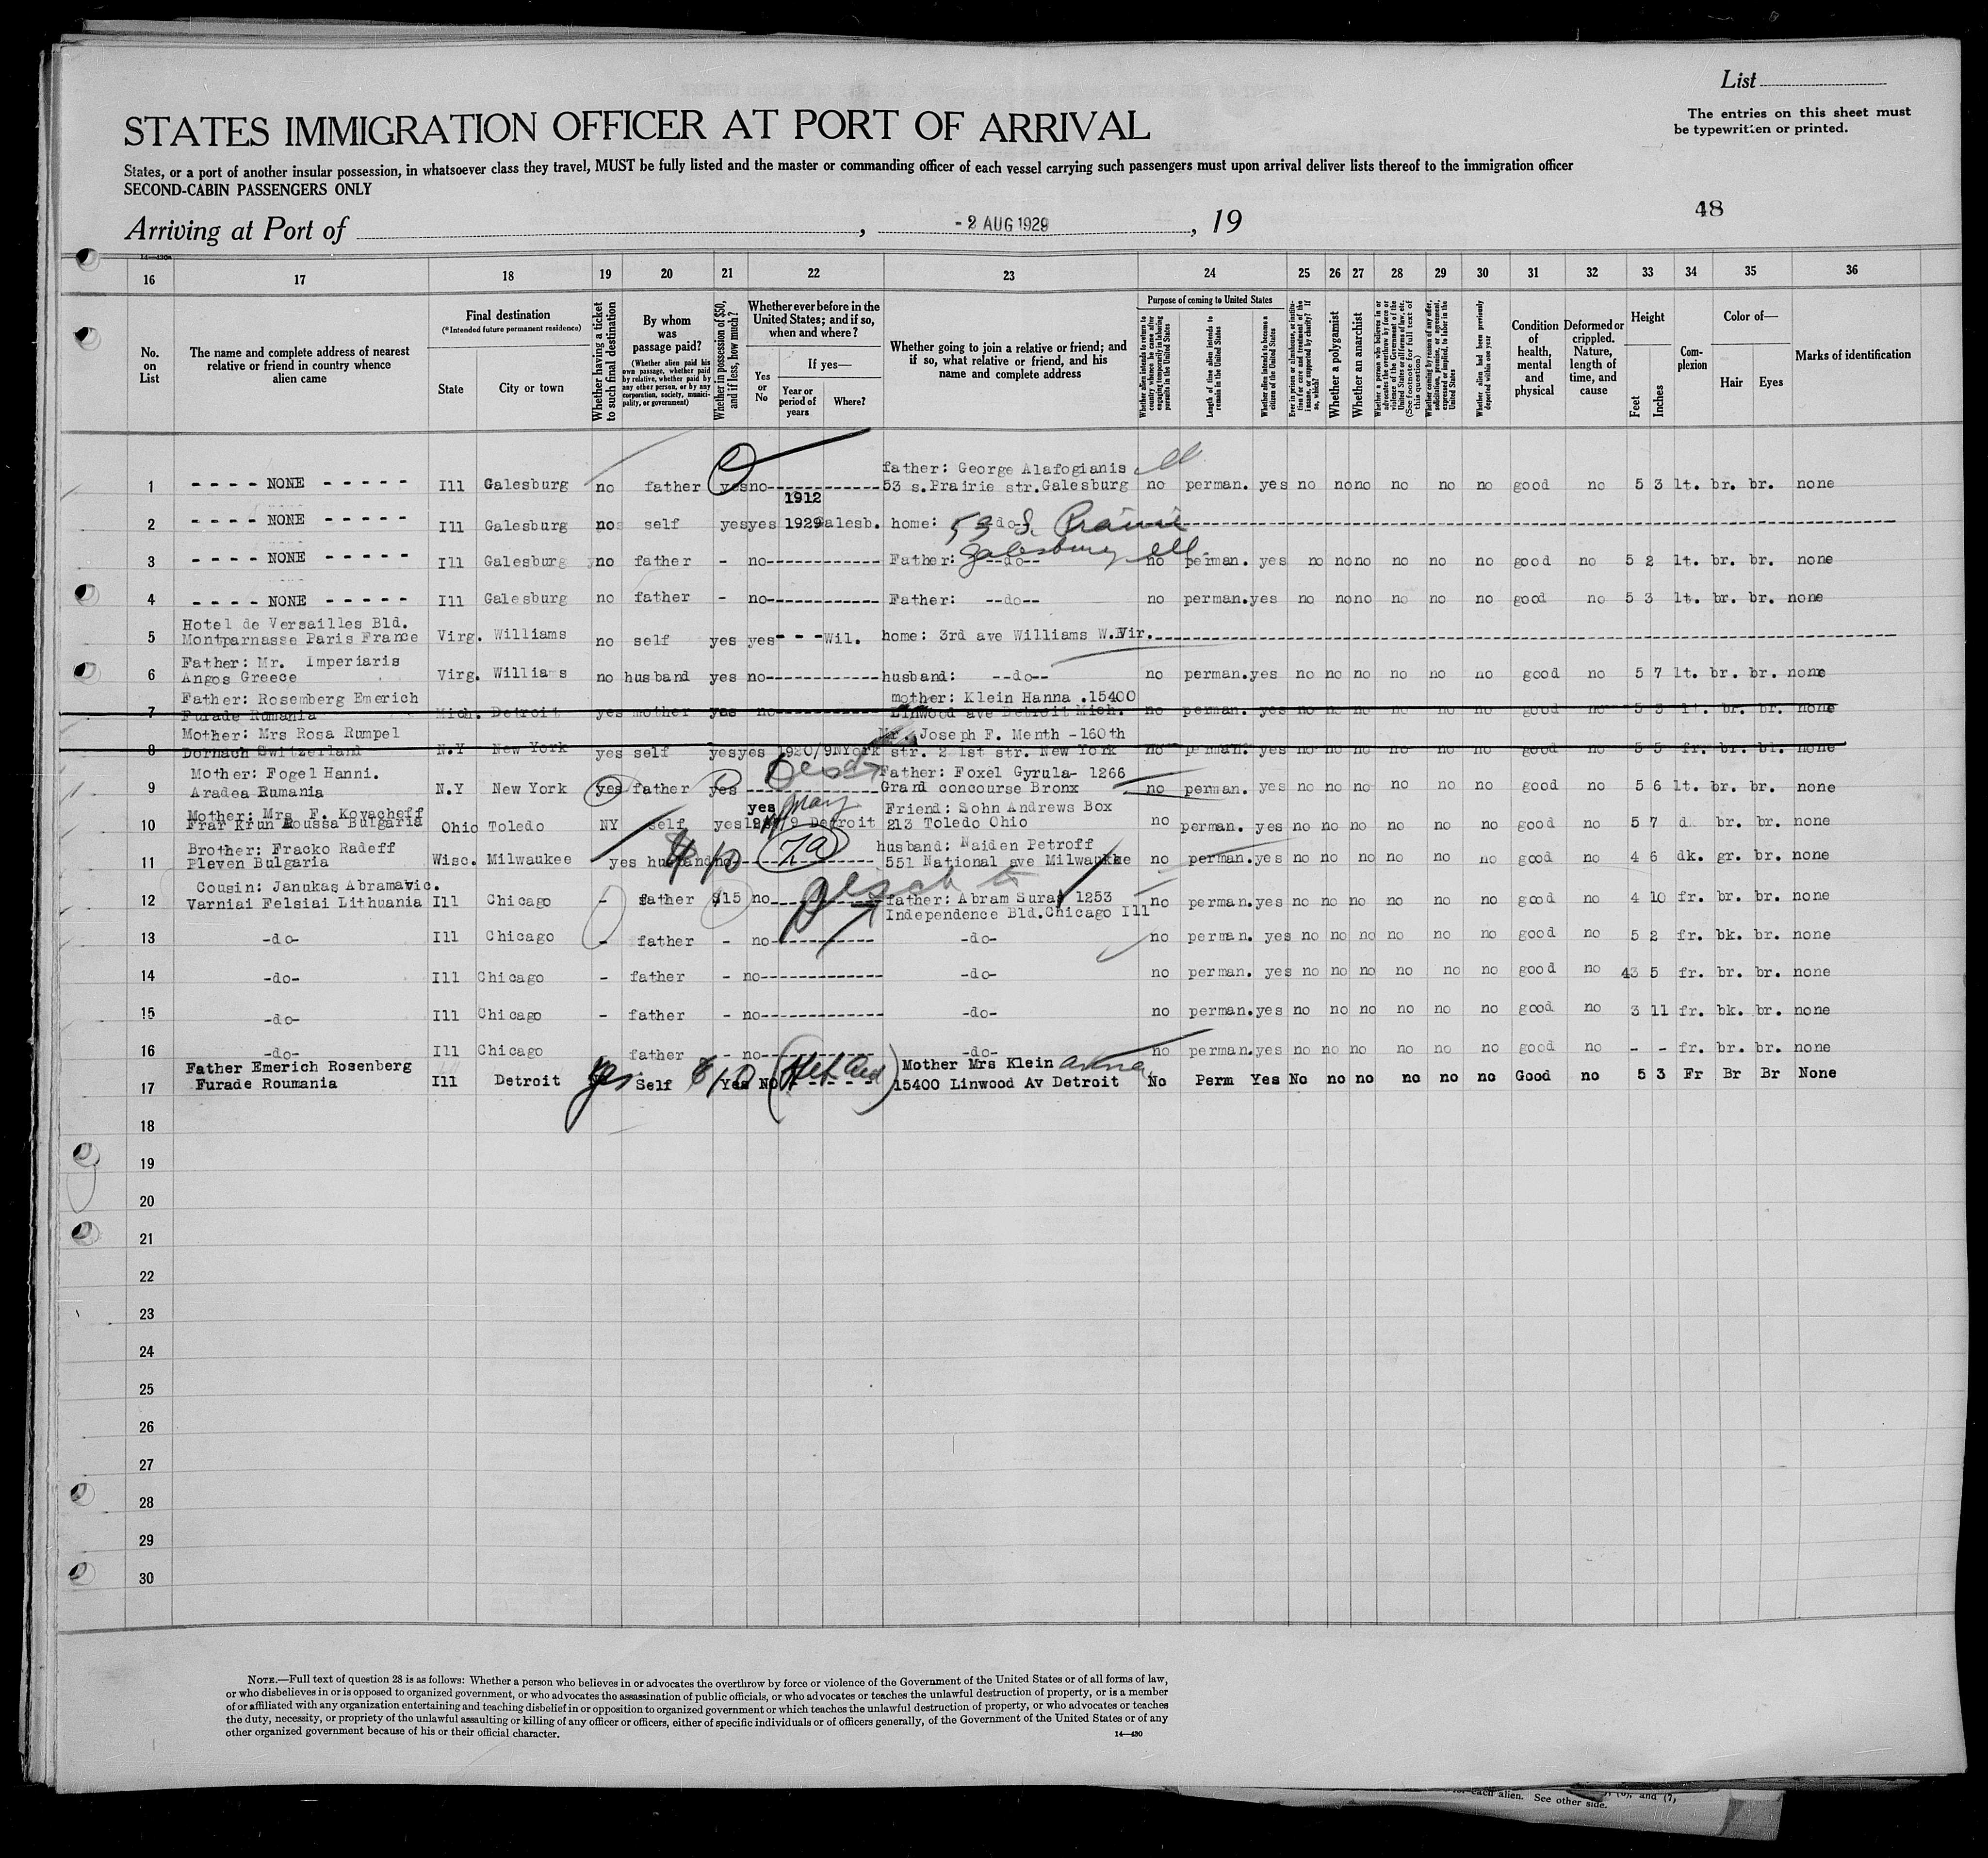 List
The entries on this sheet must
be typewritten or printed.
STATES IMMIGRATION OFFICER AT PORT OF ARRIVAL
States, or a port of another insular possession, in whatsoever class they travel, MUST be fully listed and the master or commanding officer of each vessel carrying such passengers must upon arrival deliver lists thereof to the immigration officer
SECOND-CABIN PASSENGERS ONLY
48
Arriving at Port of , - 2 AUG 1929 , 19
16 17 18 19 20 21 22 23 24 25 26 27 28 29 30 31 32 33 34 35 36
No. on List
The name and complete address of nearest relative or friend in country whence alien came
Final destination
(*Intended future permanent residence)
State
City or town
Whether having a ticket to such final destination
By whom was passage paid?
(Whether alien paid his own passage, whether paid by relative, whether paid by any other person, or by any corporation, society, municipality, or government)
Whether in possession of $50, and if less, how much?
Whether ever before in the United States; and if so, when and where?
Yes or No
If yes—
Year or period of years
Where?
Whether going to join a relative or friend; and if so, what relative or friend, and his name and complete address
Purpose of coming to United States
Whether alien intends to return to country whence he came after engaging temporarily in laboring pursuits in the United States
Length of time alien intends to remain in the United States
Whether alien intends to become a citizen of the United States
Whether a polygamist
Whether an anarchist
Whether alien had been previously deported within one year
Condition of health, mental and physical
Deformed or crippled. Nature, length of time, and cause
Height
Feet
Inches
Complexion
Color of—
Hair
Eyes
Marks of identification
father: George Alafogianis Ill
1 - - - - NONE - - - - - Ill Galesburg no father yes no 53 s.Prairie str.Galesburg no perman. yes no no no no no no good no 5 3 lt. br. br. none
1912
2 - - - - NONE - - - - - Ill Galesburg no self yes yes 1929 Galesb. home: --do-- 53 S. Prairie
Galesburg Ill.
3 - - - - NONE - - - - - Ill Galesburg no father - no Father: --do-- no perman. yes no no no no no no good no 5 2 lt. br. br. none
4 - - - - NONE - - - - - Ill Galesburg no father - no Father: --do-- no perman. yes no no no no no no good no 5 3 lt. br. br. none
Hotel de Versailles Bld.
5 Montparnasse Paris France Virg. Williams no self yes yes - - - Wil. home: 3rd ave Williams W.Vir.
Father: Mr. Imperiaris
6 Angos Greece Virg. Williams no husband yes no husband: --do-- no perman. yes no no no no no no good no 5 7 lt. br. br. none
Father: Rosemberg Emerich mother: Klein Hanna .15400
7 Furade Rumania Mich. Detroit yes mother yes no Linwood ave Detroit Mich. no perman. yes no no no no no no good no 5 3 lt. br. br. none
Mother: Mrs Rosa Rumpel Mr. Joseph F. Menth -160th
8 Dornach Switzerland N.Y New York yes self yes yes 1920/9 NYork str. 2 1st str. New York no perman. yes no no no no no no good no 5 5 fr. br. bl. none
Mother: Fogel Hanni. Father: Foxel Gyrula- 1266
9 Aradea Rumania N.Y New York yes father yes Grand concourse Bronx no perman. yes no no no no no no good no 5 6 lt. br. br. none
Mother: Mrs F. Kovacheff yes May Friend: Sohn Andrews Box
10 Frar Krun Roussa Bulgaria Ohio Toledo NY self yes Detroit 213 Toledo Ohio no perman. yes no no no no no no good no 5 7 br. br. none
Brother: Fracko Radeff husband: Naiden Petroff
11 Pleven Bulgaria Wisc. Milwaukee yes husband no 551 National ave Milwaukee no perman. yes no no no no no no good no 4 6 dk. gr. br. none
Cousin: Janukas Abramavic.
12 Varniai Felsiai Lithuania Ill Chicago - father $15 no father: Abram Suras 1253 no perman. yes no no no no no no good no 4 10 fr. br. br. none
Independence Bld.Chicago Ill
13 -do- Ill Chicago - father - no -do- no perman. yes no no no no no no good no 5 2 fr. bk. br. none
14 -do- Ill Chicago - father - no -do- no perman. yes no no no no no no good no 43 5 fr. br. br. none
15 -do- Ill Chicago - father - no -do- no perman. yes no no no no no no good no 3 11 fr. bk. br. none
16 -do- Ill Chicago father - no -do- no perman. yes no no no no no no good no - - fr. br. br. none
Father Emerich Rosenberg Mother Mrs Klein
17 Furade Roumania Ill Detroit yes Self Yes NO 15400 Linwood Av Detroit No Perm Yes No no no no no no Good no 5 3 Fr Br Br None
18
19
20
21
22
23
24
25
26
27
28
29
30
NOTE.—Full text of question 28 is as follows: Whether a person who believes in or advocates the overthrow by force or violence of the Government of the United States or of all forms of law,
or who disbelieves in or is opposed to organized government, or who advocates the assassination of public officials, or who advocates or teaches the unlawful destruction of property, or is a member
of or affiliated with any organization entertaining and teaching disbelief in or opposition to organized government or which teaches the unlawful destruction of property, or who advocates or teaches
the duty, necessity, or propriety of the unlawful assaulting or killing of any officer or officers, either of specific individuals or of officers generally, of the Government of the United States or of any
other organized government because of his or their official character.
14—430
each alien. See other side.